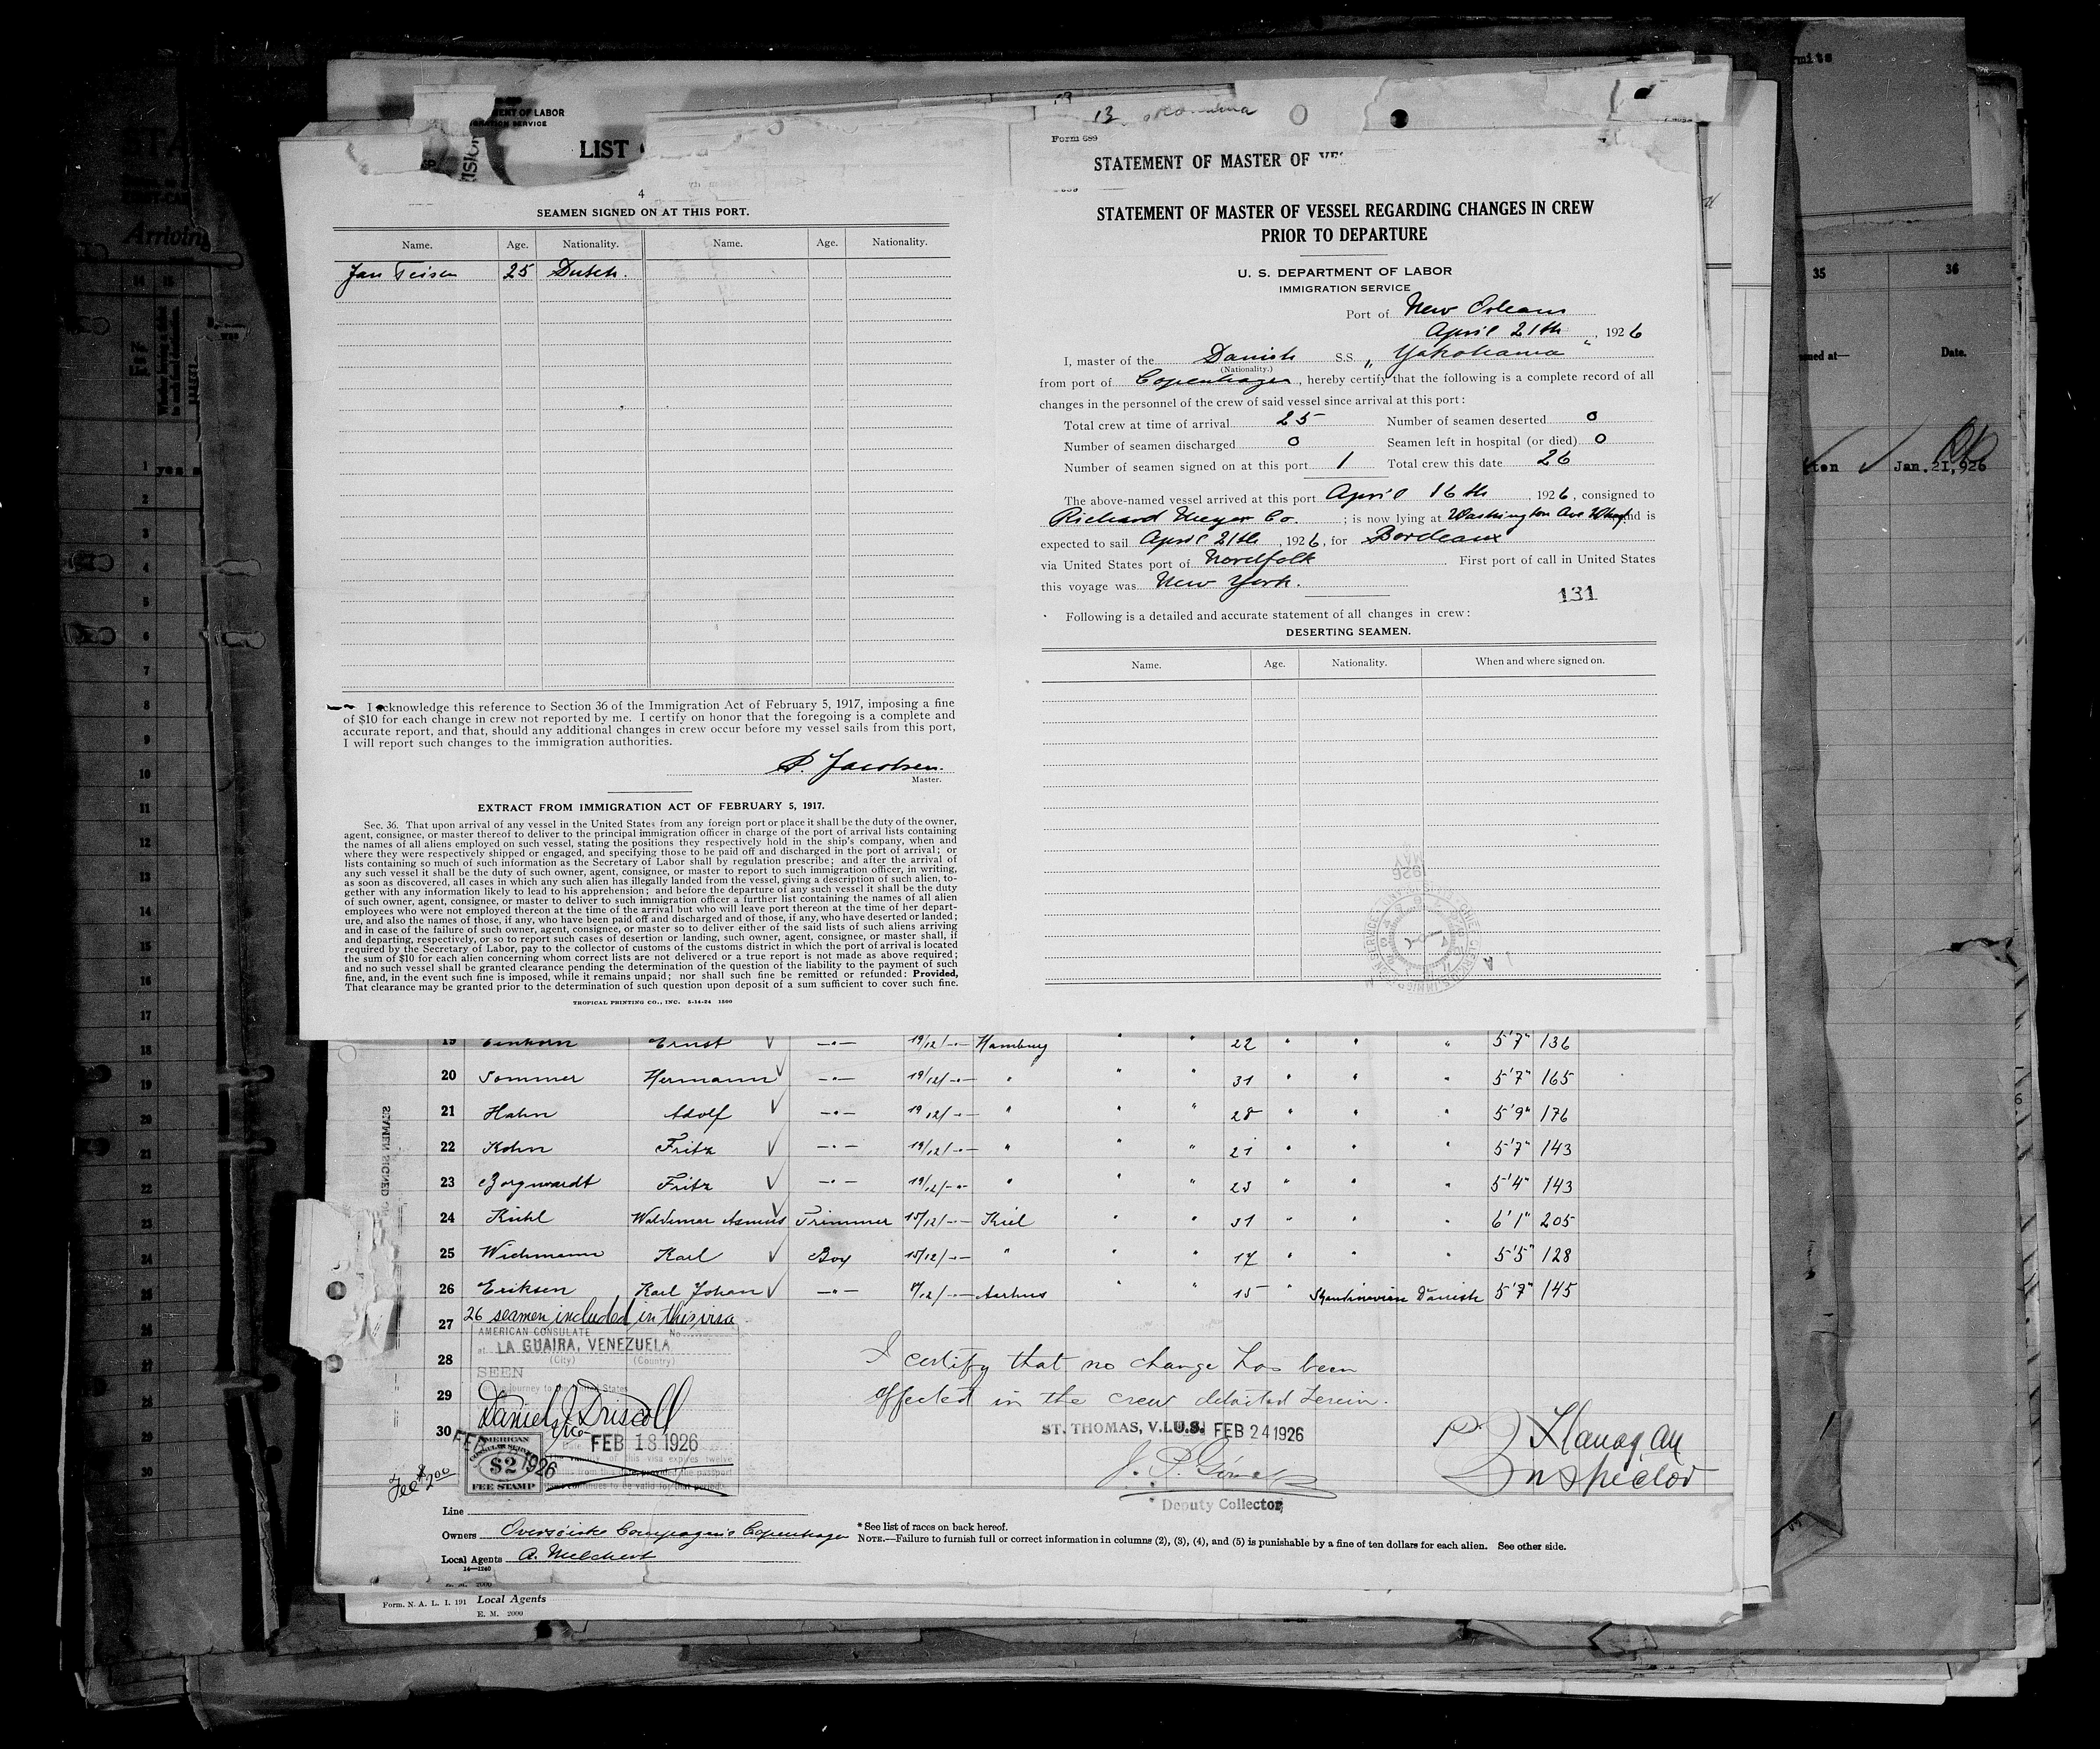 LIST
4
SEAMEN SIGNED ON AT THIS PORT.
Name. Age. Nationality. Name. Age. Nationality.
Jan 25 Dutch.
I acknowledge this reference to Section 36 of the Immigration Act of February 5, 1917, imposing a fine
of $10 for each change in crew not reported by me. I certify on honor that the foregoing is a complete and
accurate report, and that, should any additional changes in crew occur before my vessel sails from this port,
I will report such changes to the immigration authorities.
P. Jacobsen.
Master.
EXTRACT FROM IMMIGRATION ACT OF FEBRUARY 5, 1917.
Sec. 36. That upon arrival of any vessel in the United States from any foreign port or place it shall be the duty of the owner,
agent, consignee, or master thereof to deliver to the principal immigration officer in charge of the port of arrival lists containing
the names of all aliens employed on such vessel, stating the positions they respectively hold in the ship's company, when and
where they were respectively shipped or engaged, and specifying those to be paid off and discharged in the port of arrival; or
lists containing so much of such information as the Secretary of Labor shall by regulation prescribe; and after the arrival of
any such vessel it shall be the duty of such owner, agent, consignee, or master to report to such immigration officer, in writing,
as soon as discovered, all cases in which any such alien has illegally landed from the vessel, giving a description of such alien, to-
gether with any information likely to lead to his apprehension; and before the departure of any such vessel it shall be the duty
of such owner, agent, consignee, or master to deliver to such immigration officer a further list containing the names of all alien
employees who were not employed thereon at the time of the arrival but who will leave port thereon at the time of her depart-
ure, and also the names of those, if any, who have been paid off and discharged and of those, if any, who have deserted or landed;
and in case of the failure of such owner, agent, consignee, or master so to deliver either of the said lists of such aliens arriving
and departing, respectively, or so to report such cases of desertion or landing, such owner, agent, consignee, or master shall, if
required by the Secretary of Labor, pay to the collector of customs of the customs district in which the port of arrival is located
the sum of $10 for each alien concerning whom correct lists are not delivered or a true report is not made as above required;
and no such vessel shall be granted clearance pending the determination of the question of the liability to the payment of such
fine, and, in the event such fine is imposed, while it remains unpaid; nor shall such fine be remitted or refunded: Provided,
That clearance may be granted prior to the determination of such question upon deposit of a sum sufficient to cover such fine.
TROPICAL PRINTING CO., INC. 5-14-24 1500
Form 689
STATEMENT OF MASTER OF
STATEMENT OF MASTER OF VESSEL REGARDING CHANGES IN CREW
PRIOR TO DEPARTURE
U. S. DEPARTMENT OF LABOR
IMMIGRATION SERVICE
Port of New Orleans
April 21th, 1926
I, master of the Danish S.S. „Yokohama“
(Nationality.)
from port of Copenhagen, hereby certify that the following is a complete record of all
changes in the personnel of the crew of said vessel since arrival at this port:
Total crew at time of arrival 25 Number of seamen deserted 0
Number of seamen discharged 0 Seamen left in hospital (or died) 0
Number of seamen signed on at this port 1 Total crew this date 26
The above-named vessel arrived at this port April 16th, 1926, consigned to
Richard Meyer Co.; is now lying at Washington Ave Wharf and is
expected to sail April 21th, 1926, for Bordeaux
via United States port of Nordfolk First port of call in United States
this voyage was New York.
131
Following is a detailed and accurate statement of all changes in crew:
DESERTING SEAMEN.
Name. Age. Nationality. When and where signed on.
35 36
Date.
Jan. 21, 926
19 Einhorn Ernst 19/12/ Hamburg " " 22 " " " 5'7" 136
20 Sommer Hermann 19/12/ " " " 31 " " " 5'7" 165
21 Hahn Adolf 19/12/ " " " 28 " " " 5'9" 176
22 Kohn Fritz 19/12/ " " " 21 " " " 5'7" 143
23 Borgwardt Fritz 19/12/ " " " 23 " " " 5'4" 143
24 Kühl Waldemar Asmus Trimmer 15/12/ Kiel " " 31 " " " 6'1" 205
25 Wichmann Karl Boy 15/12/ " " " 17 " " " 5'5" 128
26 Eriksen Karl Johan 8/12/ Aarhus " " 15 " Skandinavian Danish 5'7" 145
27 26 seamen included in this visa
AMERICAN CONSULATE No
at LA GUAIRA, VENEZUELA
(City) (Country)
28 SEEN
29 Daniel J Driscoll
30 FEB 18 1926
AMERICAN CONSULAR SERVICE $2 FEE STAMP
Fee $2.00
I certify that no change has been
effected in the crew detailed herein.
ST. THOMAS, V.I.U.S. FEB 24 1926
Deputy Collector
Flanagan
Inspector
Line
Owners Oversöiske Compagnie Copenhagen
Local Agents A. Melchert
14—1240
* See list of races on back hereof.
NOTE.—Failure to furnish full or correct information in columns (2), (3), (4), and (5) is punishable by a fine of ten dollars for each alien. See other side.
Form. N. A. L. I. 191 Local Agents
E. M. 2000